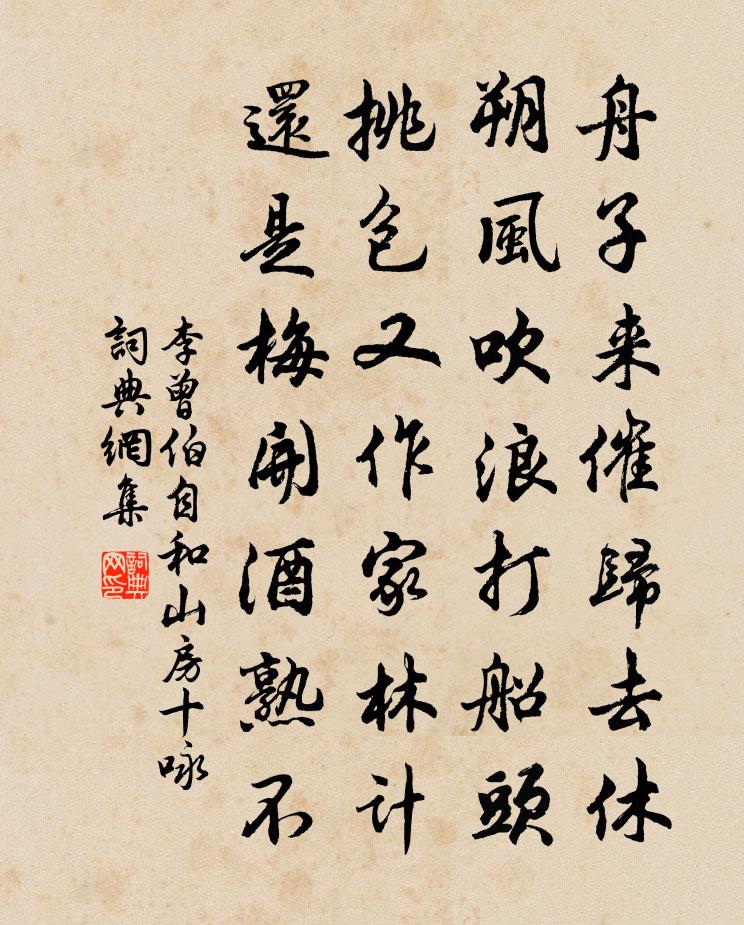 舟子来催歸去休
朔風吹浪打船頭
挑包又作家林計
還是梅開酒熟不
李曾伯自和山房十咏
詞典網集
詞典
网印